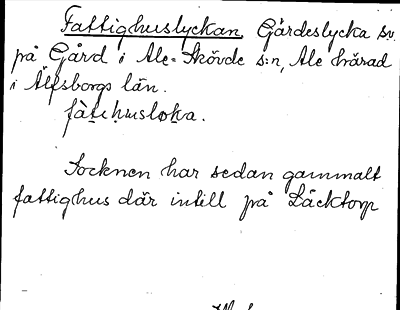 Fattighuslyckan. Gärdeslycka sv.
på Gård i Ale-Skövde s:n, Ale härad
i Älfsborgs län.
fàtᵢhusloka.
Socknen har sedan gammalt
fattighus där intill på Läcktorp